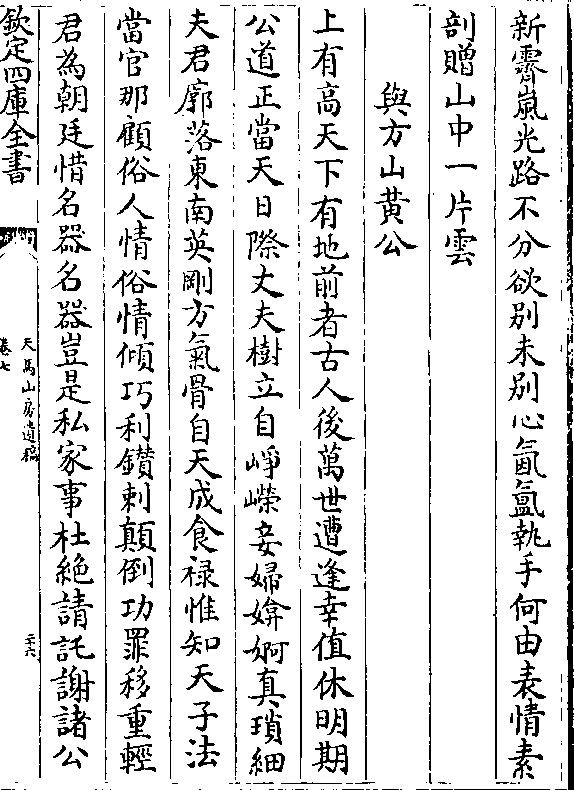 新霽嵐光路不分欲別未別心氤氳執手何由表情素
剖贈山中一片雲
與方山黃公
上有高天下有地前者古人後萬世遭逢幸值休明期
公道正當天日際丈夫樹立自崢嶸妾婦媕婀真瑣細
夫君廓落東南英剛方氣骨自天成食祿惟知天子法
當官那顧俗人情俗情傾巧利鑽刺顛倒功罪移重輕
君為朝廷惜名器名器豈是私家事杜絶請託謝諸公
欽定四庫全書
天馬山房遺稿
卷七
二十六